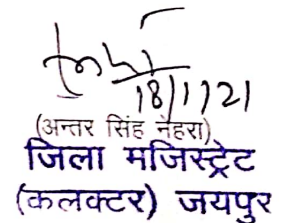 18/1/21
(अन्तर सिंह नेहरा)
जिला मजिस्ट्रेट
(कलक्टर) जयपुर